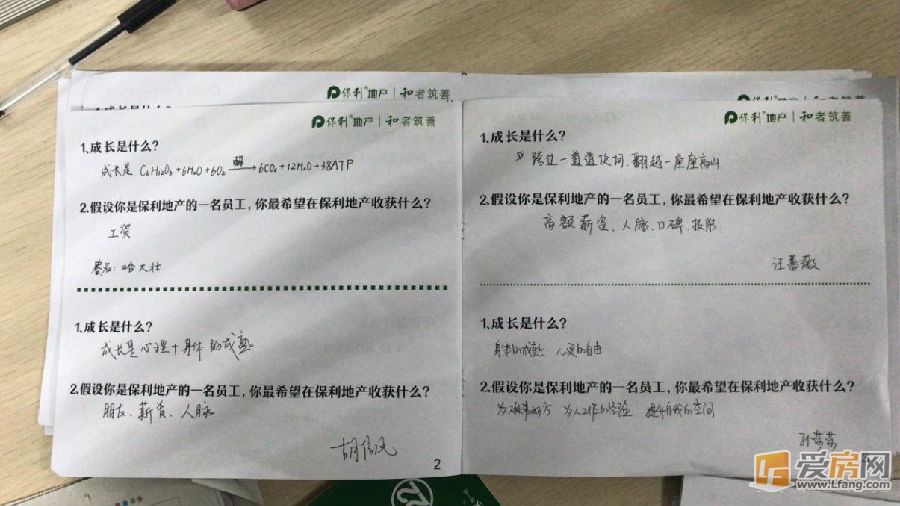 保利地产 | 和者筑善
1.成长是什么?
成长是 C6H12O6+6H2O+6O2 酶→ 6CO2+12H2O+38ATP
2.假设你是保利地产的一名员工,你最希望在保利地产收获什么?
工资
署名:哈大壮
1.成长是什么?
成长是心理+身体的成熟
2.假设你是保利地产的一名员工,你最希望在保利地产收获什么?
朋友、薪资、人脉
2
保利地产 | 和者筑善
1.成长是什么?
跨过一道道坎坷,翻越一座座高山
2.假设你是保利地产的一名员工,你最希望在保利地产收获什么?
高额薪资、人脉、口碑、技能
1.成长是什么?
身体的成熟 心灵的自由
2.假设你是保利地产的一名员工,你最希望在保利地产收获什么?
为人工作的经验 提升自我的空间
爱房网
www.Lfang.com